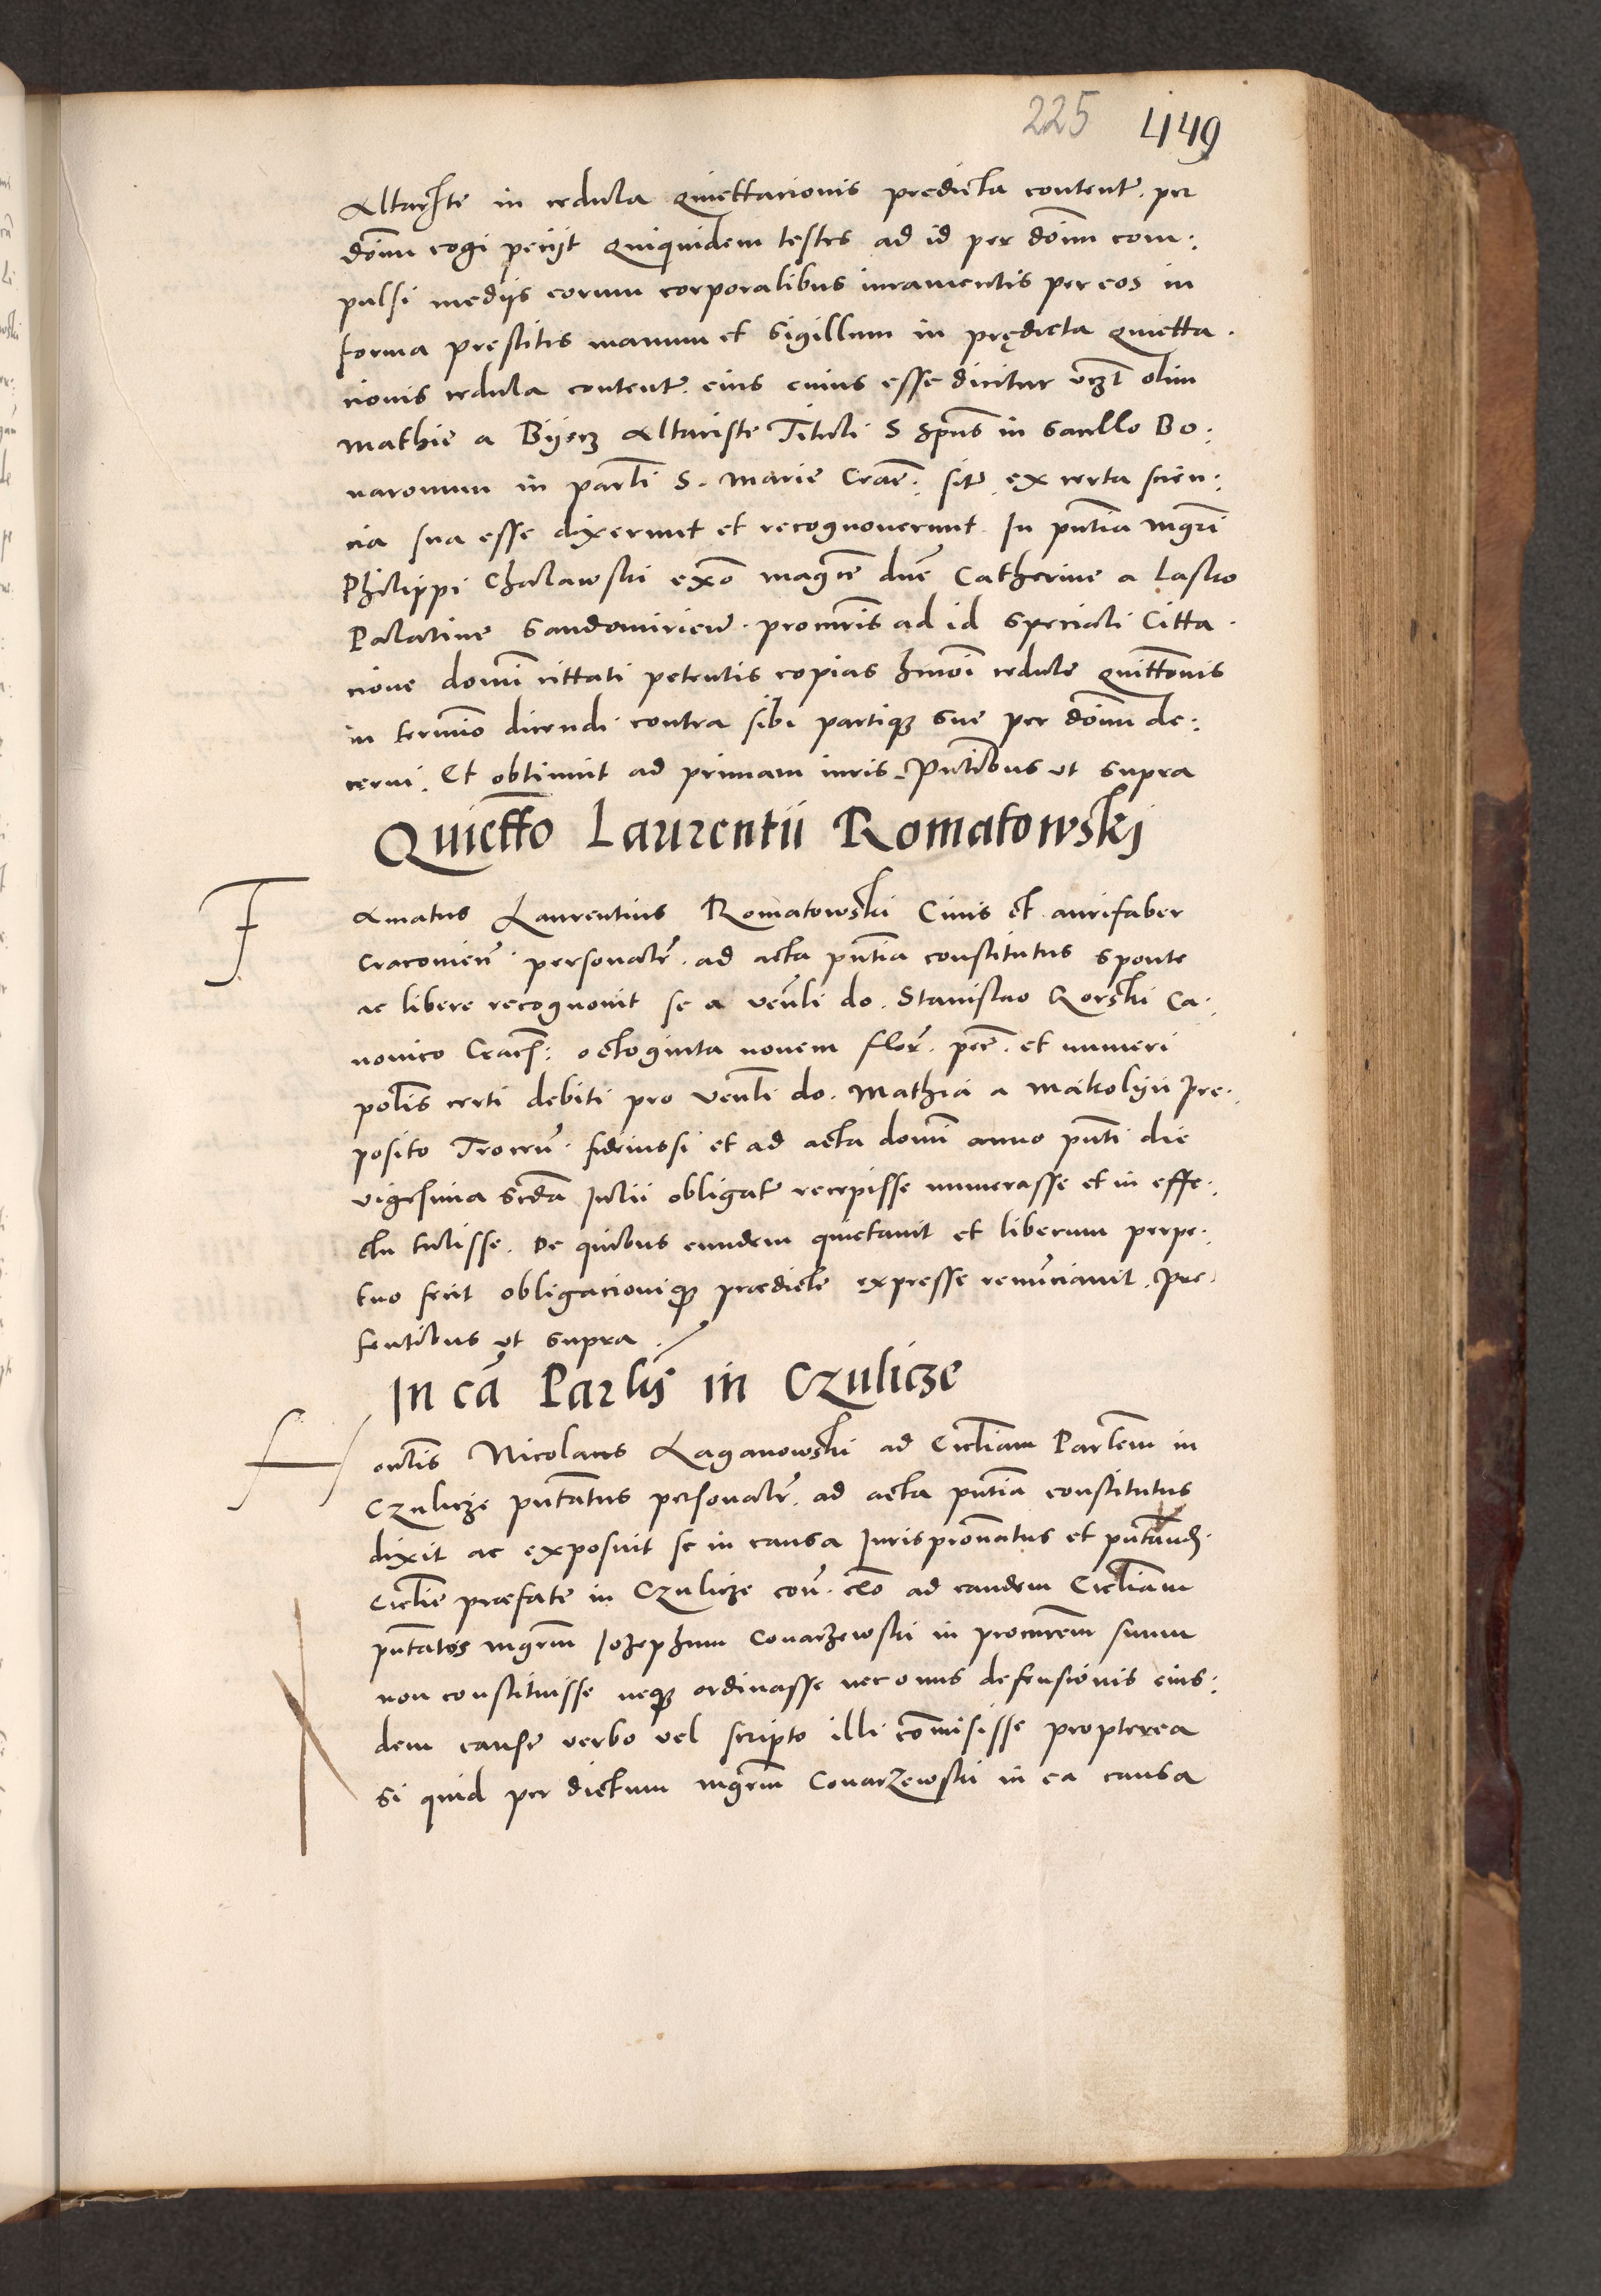 225 449
Altariste in cedula quiettacionis predicta content. per
dōnū cogi peciit quiquidem testes ad id per dōnū com:
pulsi mediis eorum corporalibus iuramentis per eos in
forma pręstitis manum et sigillum in prędicta quietta.
cionis cedula content. eius cuius esse dicitur vczt olim
Mathie a Byecz Altariste Tituli S Spūs in sacello Bo:
naronum in parli S. Marie Crac: sit. ex certa scien:
cia sua esse dixerunt et recognoverunt. In pn̄tia mgrī
Philippi Chalawski exō magce dne Catherine a Lasko
Palatine Sandomirien. procuris ad id speciali Citta.
cione domī cittati petentis copias hmōi cedule quittōnis
in termīo dicendi contra sibi partiq̨ sue per dōnū de:
cerni. Et obtinuit ad primam iuris. Pn̄tibus ut supra
Quiettō Laurentii Romatowskj
Famatus Laurentius Romatowski Civis et aurifaber
Cracovien̄. personalr̄. ad acta pn̄tia constitutus sponte
ac libere recognovit se a ven̄li do. Stanislao Gorski Ca.
nonico Crac̄: octoginta novem flor̄. pec̄. et numeri
polīs certi debiti pro ven̄li do. Mathia a Makolyn Pre.
posito Trocen̄. fideiussi et ad acta domī anno pn̄ti die
vigesima scdā Julii obligat. recepisse numerasse et in effe:
ctu tulisse. De quibus eundem quietavit et liberum perpe.
tuo fecit obligacioniq̨ prædicte expresse renūciavit. Pre
sentibus ut supra
In cā Parlīs in Czulicze
Honelīs Nicolaus Laganowski ad Ecclīam Parlēm in
Czulicze pn̄tatus personalr̄. ad acta pn̄tia constitutus
dixit ac exposuit se in causa Jurispronatus et pn̄tandi.
Ecclīe præfate in Czulicze con̄. clō ad eandem Ecclīam
pn̄tatos mgrm̄ Jozephum Conarzewski in procurēm suum
non constituisse neq̨ ordinasse nec onus defensionis eius:
dem cause verbo vel scripto illi cōmisisse propterea
si quid per dictum mgrm̄ Conarzewski in ea causa